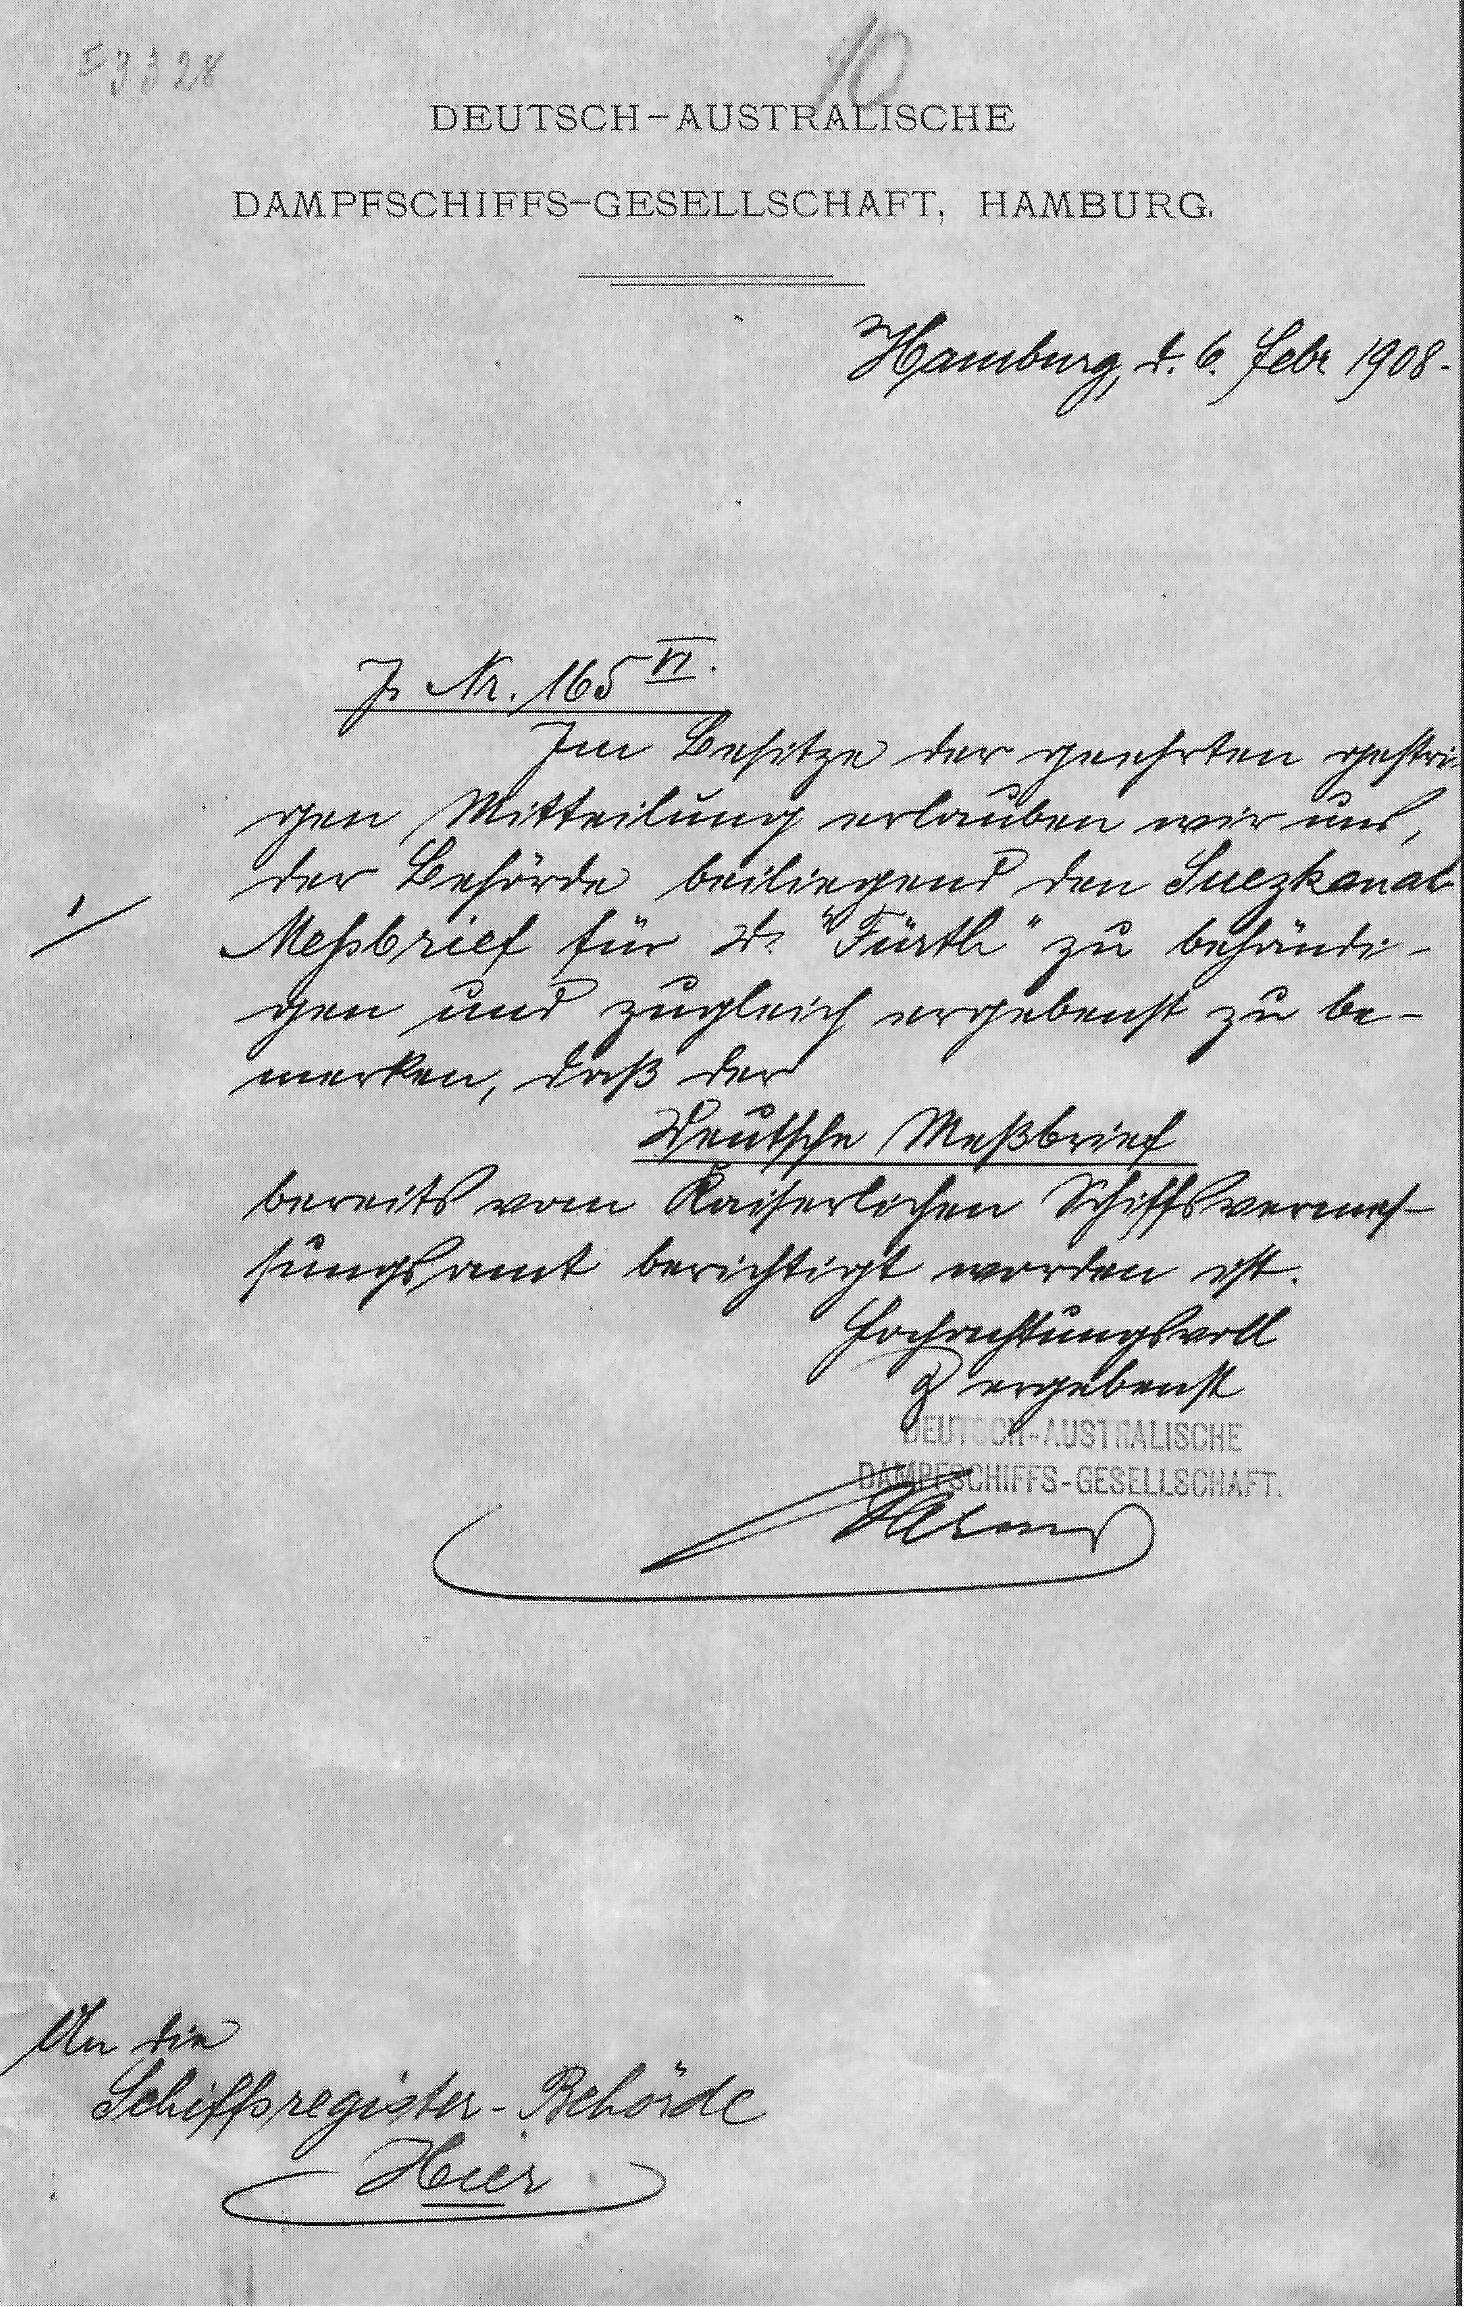 10
DEUTSCH-AUSTRALISCHE
DAMPFSCHIFFS-GESELLSCHAFT, HAMBURG.
Hamburg, d. 6. Febr 1908.
J. Nr. 165 VI.
Im Besitze der geehrten gestri-
gen Mitteilung erlauben wir uns,
der Behörde beiliegend den Suezkanal-
1/
Meßbrief für D. "Fürth" zu behändi-
gen und zugleich ergebenst zu be-
merken, daß der
Deutsche Meßbrief
bereits vom Kaiserlichen Schiffsvermes-
sungsamt berichtigt worden ist.
Hochachtungsvoll
ergebenst
DEUTSCH-AUSTRALISCHE
DAMPFSCHIFFS-GESELLSCHAFT.
An die
Schiffsregister-Behörde
Hier